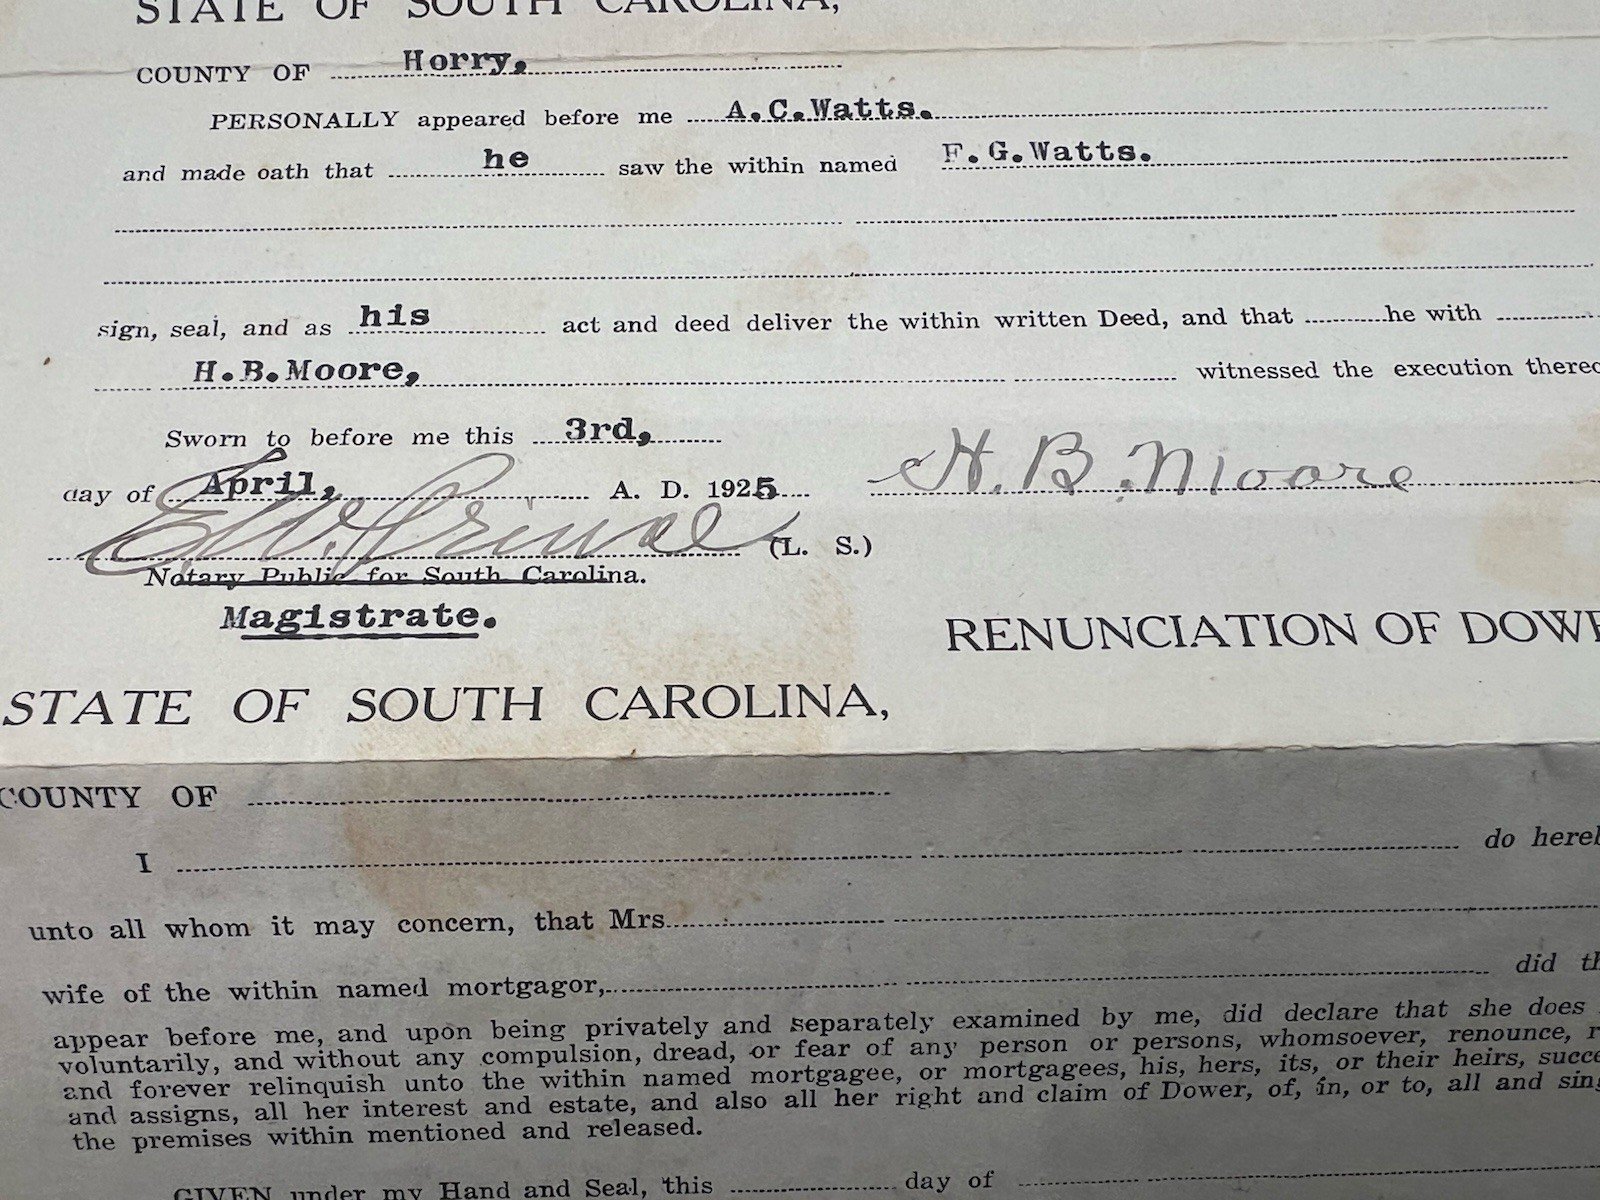 STATE OF SOUTH CAROLINA,
COUNTY OF Horry,
PERSONALLY appeared before me A.C.Watts.
and made oath that he saw the within named F.G.Watts.
sign, seal, and as his act and deed deliver the within written Deed, and that he with
H.B.Moore, witnessed the execution thereo
Sworn to before me this 3rd,
day of April, A. D. 1925 H. B. Moore
E. W. Prince (L. S.)
Notary Public for South Carolina.
Magistrate.
RENUNCIATION OF DOWE
STATE OF SOUTH CAROLINA,
COUNTY OF
I do hereb
unto all whom it may concern, that Mrs.
wife of the within named mortgagor, did th
appear before me, and upon being privately and separately examined by me, did declare that she does
voluntarily, and without any compulsion, dread, or fear of any person or persons, whomsoever, renounce, r
and forever relinquish unto the within named mortgagee, or mortgagees, his, hers, its, or their heirs, succe
and assigns, all her interest and estate, and also all her right and claim of Dower, of, in, or to, all and sing
the premises within mentioned and released.
GIVEN under my Hand and Seal, this day of